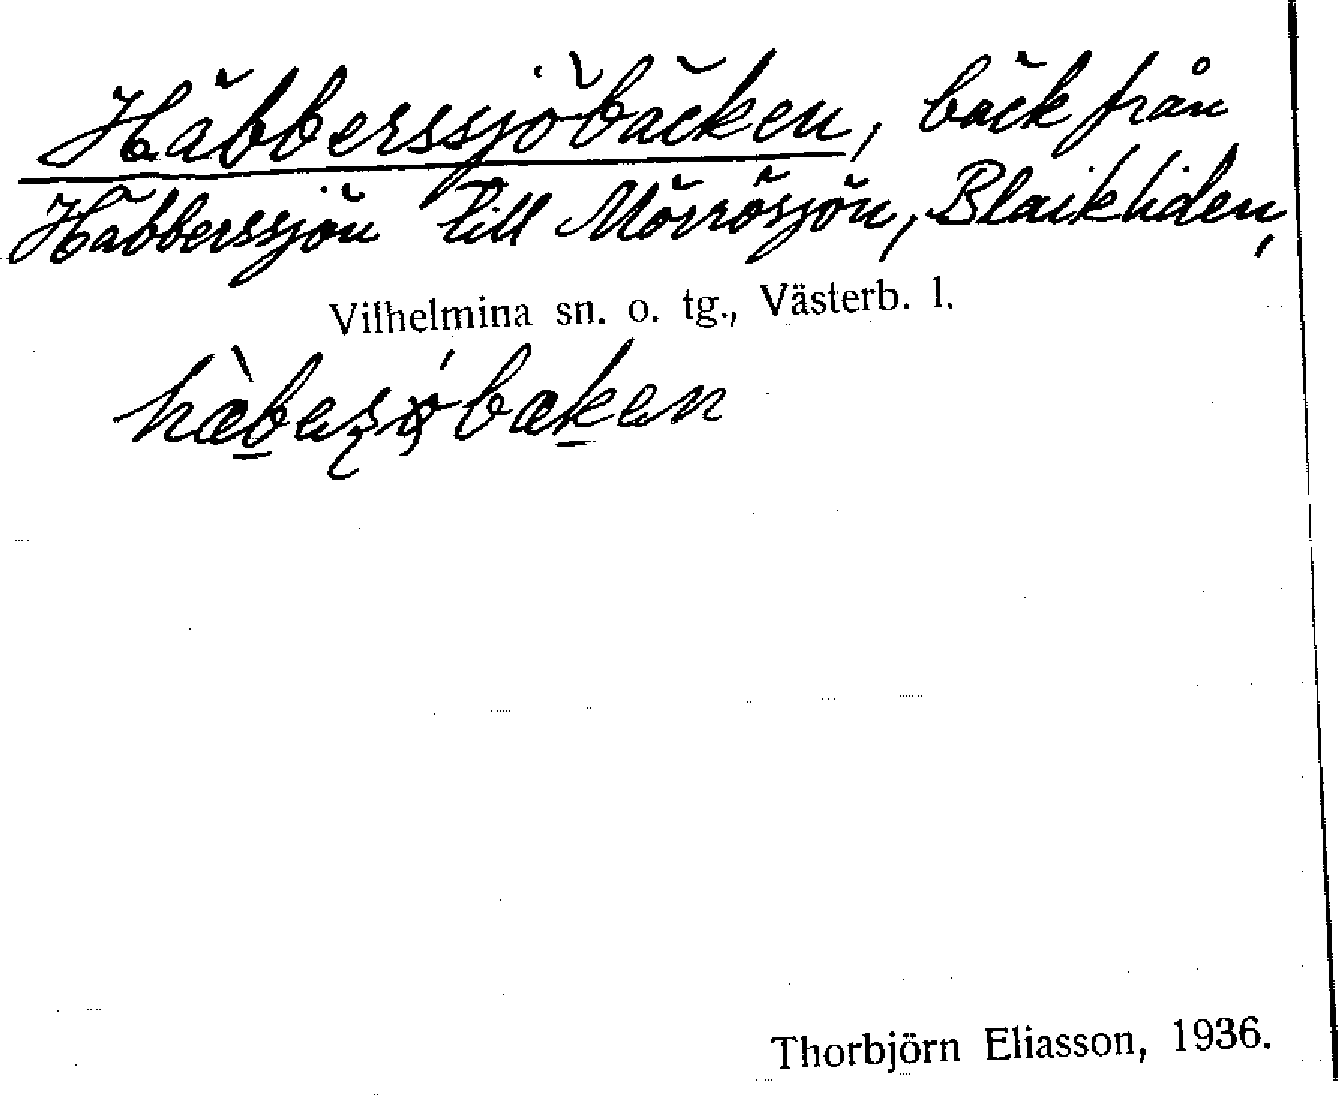 Häbberssjöbäcken, bäck från
Häbberssjön till Mörrösjön, Blaikliden,
Vilhelmina sn. o. tg., Västerb. l.
Thorbjörn Eliasson, 1936.